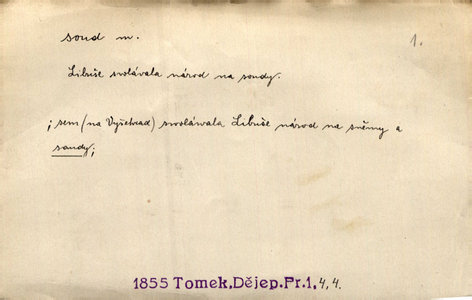 soud m.
1.
Libuše svolávala národ na soudy.
; sem (na Vyšehrad) svolávala Libuše národ na sněmy a
soudy;
1855 Tomek, Dějep. Pr. 1, 4, 4.